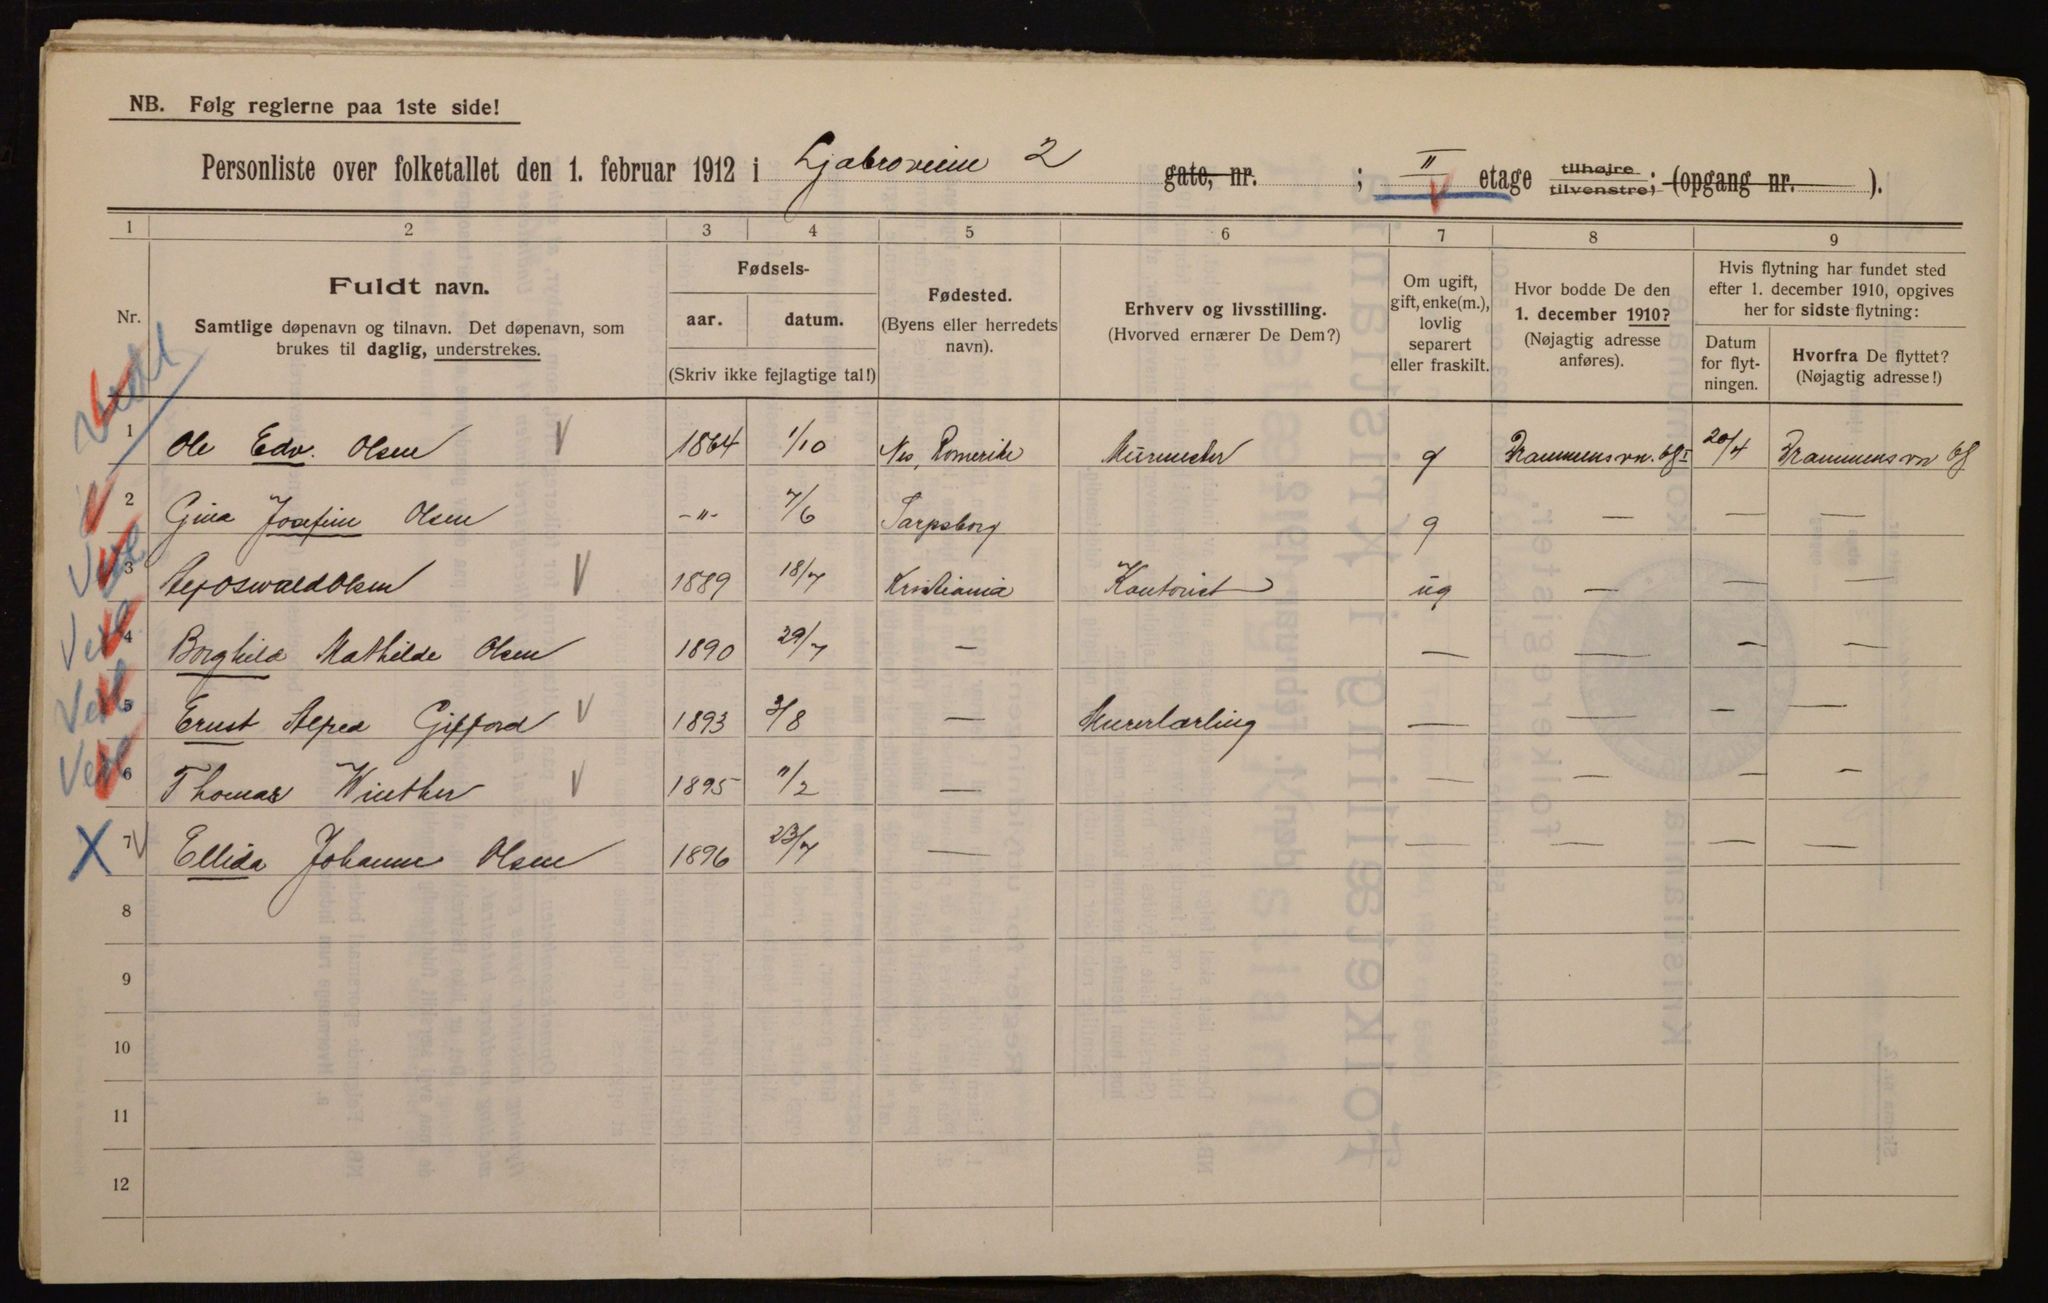 NB. Følg reglerne paa 1ste side!
Personliste over folketallet den 1. februar 1912 i Ljabroveien 2 gate, nr. ; II etage tilhøjre tilvenstre; (opgang nr. ).
1 2 3 4 5 6 7 8 9
Nr.
Fuldt navn.
Samtlige døpenavn og tilnavn. Det døpenavn, som
brukes til daglig, understrekes.
Fødsels-
aar. datum.
(Skriv ikke fejlagtige tal!)
Fødested.
(Byens eller herredets
navn).
Erhverv og livsstilling.
(Hvorved ernærer De Dem?)
Om ugift,
gift, enke(m.),
lovlig
separert
eller fraskilt.
Hvor bodde De den
1. december 1910?
(Nøjagtig adresse
anføres).
Hvis flytning har fundet sted
efter 1. december 1910, opgives
her for sidste flytning:
Datum
for flyt-
ningen.
Hvorfra De flyttet?
(Nøjagtig adresse!)
1 Ole Edv. Olsen 1864 1/10 Nes, Romerike Murmester g Drammensvn. 20/4 Drammensvn
2 Gina Josefine Olsen -"- 7/6 Sarpsborg g — — —
3 Alf Oswald Olsen 1889 18/7 Kristiania Kontorist ug — — —
4 Borghild Mathilde Olsen 1890 29/7 — — — — —
5 Ernst Alfred Gifford 1893 3/8 — Murerlærling — — — —
6 Thomas Winther 1895 11/2 — — — — —
7 Ellida Johanne Olsen 1896 23/7 — — — — —
8
9
10
11
12